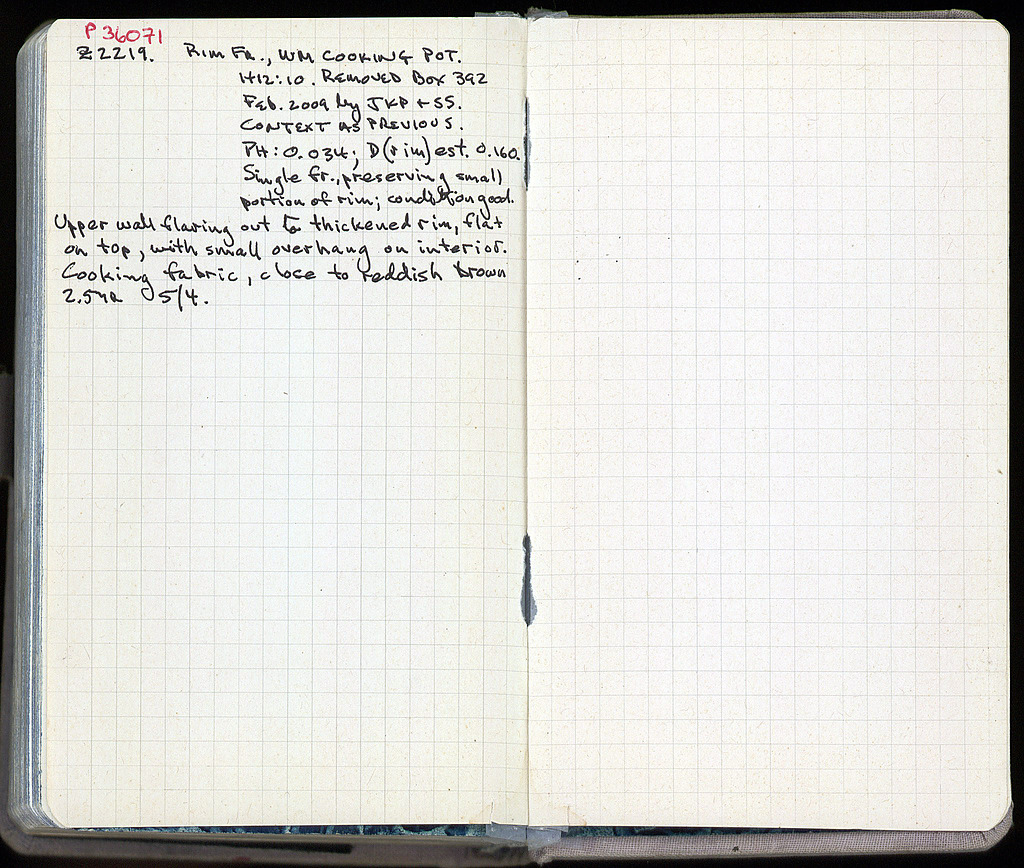 P 36071
Z 2219. RIM FR., WM COOKING POT.
H12:10. REMOVED BOX 392
Feb. 2009 by JKP + SS.
CONTEXT AS PREVIOUS.
PH: 0.034; D(rim) est. 0.160.
Single fr., preserving small
portion of rim; condition good.
Upper wall flaring out to thickened rim, flat
on top, with small overhang on interior.
Cooking fabric, close to reddish brown
2.5YR 5/4.